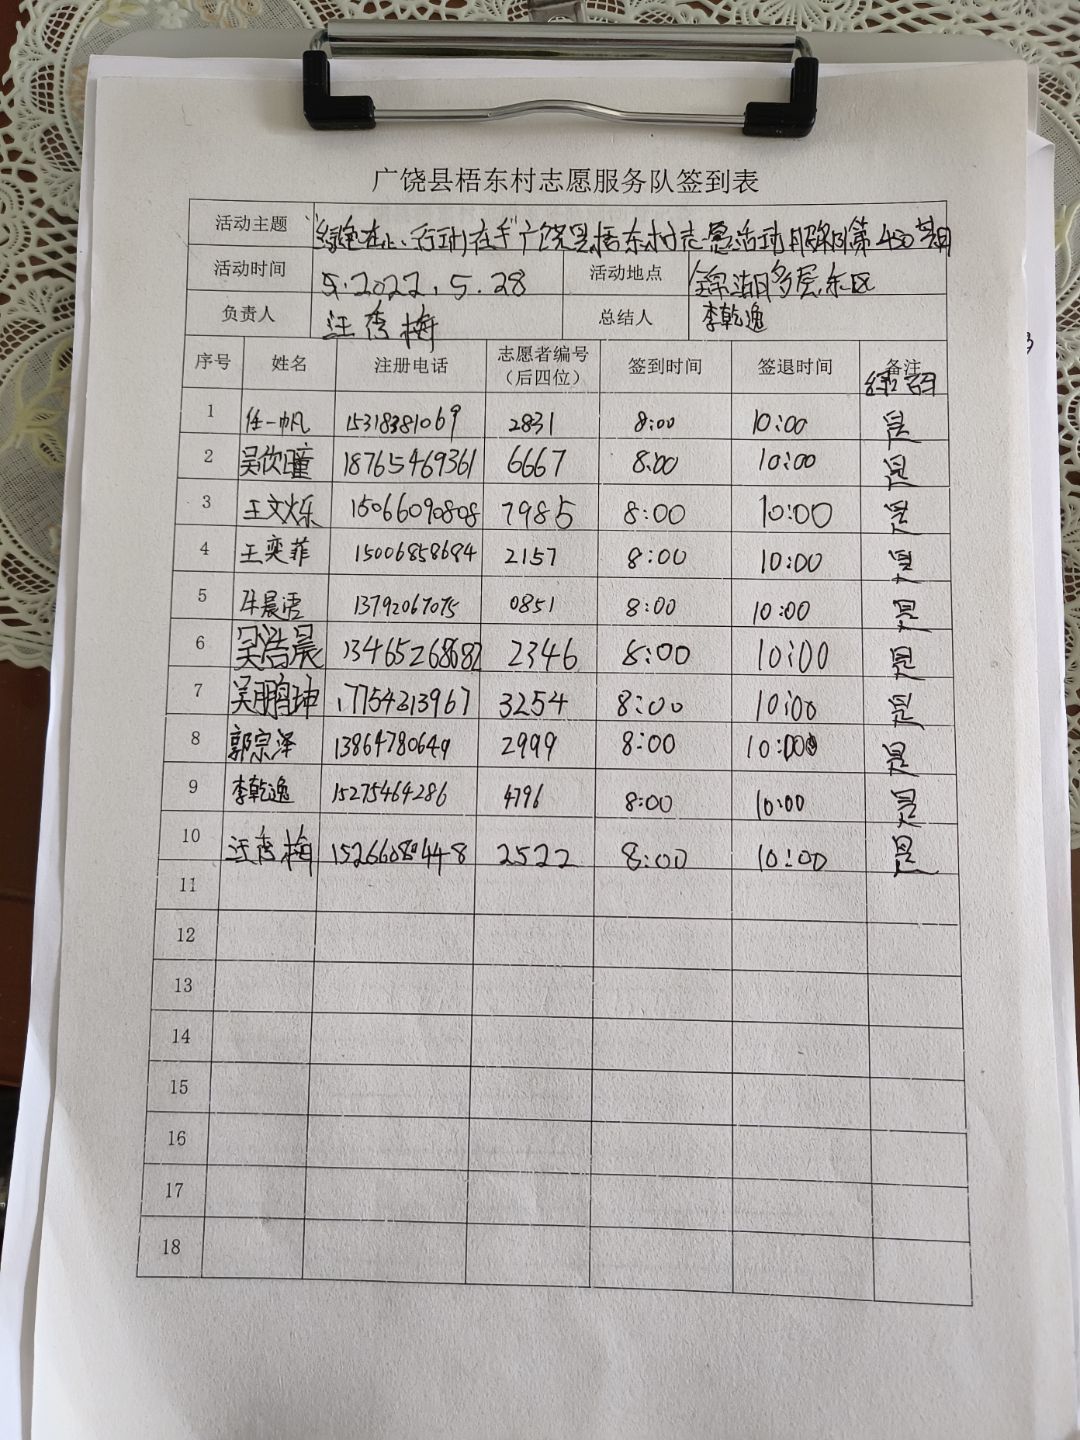 广饶县梧东村志愿服务队签到表
活动主题 "绿色在心、行动在手"广饶县梧东村志愿活动服务队第430期
活动时间 2022.5.28 活动地点 锦湖多层东区
负责人 汪秀梅 总结人 李乾逸
序号 姓名 注册电话 志愿者编号（后四位） 签到时间 签退时间 备注 绿码
1 任一帆 15318381069 2831 8:00 10:00 是
2 吴欣瞳 18765469361 6667 8:00 10:00 是
3 王文烁 15066090808 7985 8:00 10:00 是
4 王奕菲 15006858684 2157 8:00 10:00 是
5 牛晨语 13792067075 0851 8:00 10:00 是
6 吴浩晨 13465268682 2346 8:00 10:00 是
7 吴鹏坤 17754213967 3254 8:00 10:00 是
8 郭宗泽 13864780649 2999 8:00 10:00 是
9 李乾逸 15275464286 4796 8:00 10:00 是
10 汪秀梅 15266080448 2522 8:00 10:00 是
11
12
13
14
15
16
17
18